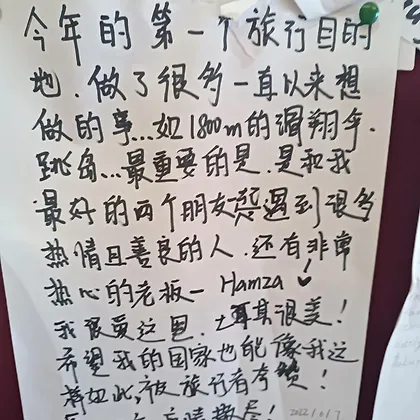 今年的第一个旅行目的
地.做了很多一直以来想
做的事...如1800m的滑翔伞.
跳岛...最重要的是.是和我
最好的两个朋友 遇到很多
热情且善良的人.还有非常
热心的老板— Hamza ♥
我很爱这里.土耳其很美!
希望我的国家也能像我这
般如此,被旅行者夸赞!
2022/01.7